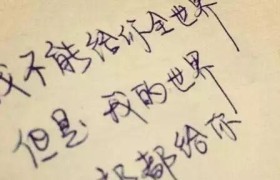 我不能给你全世界
但是 我的世界
部都给你